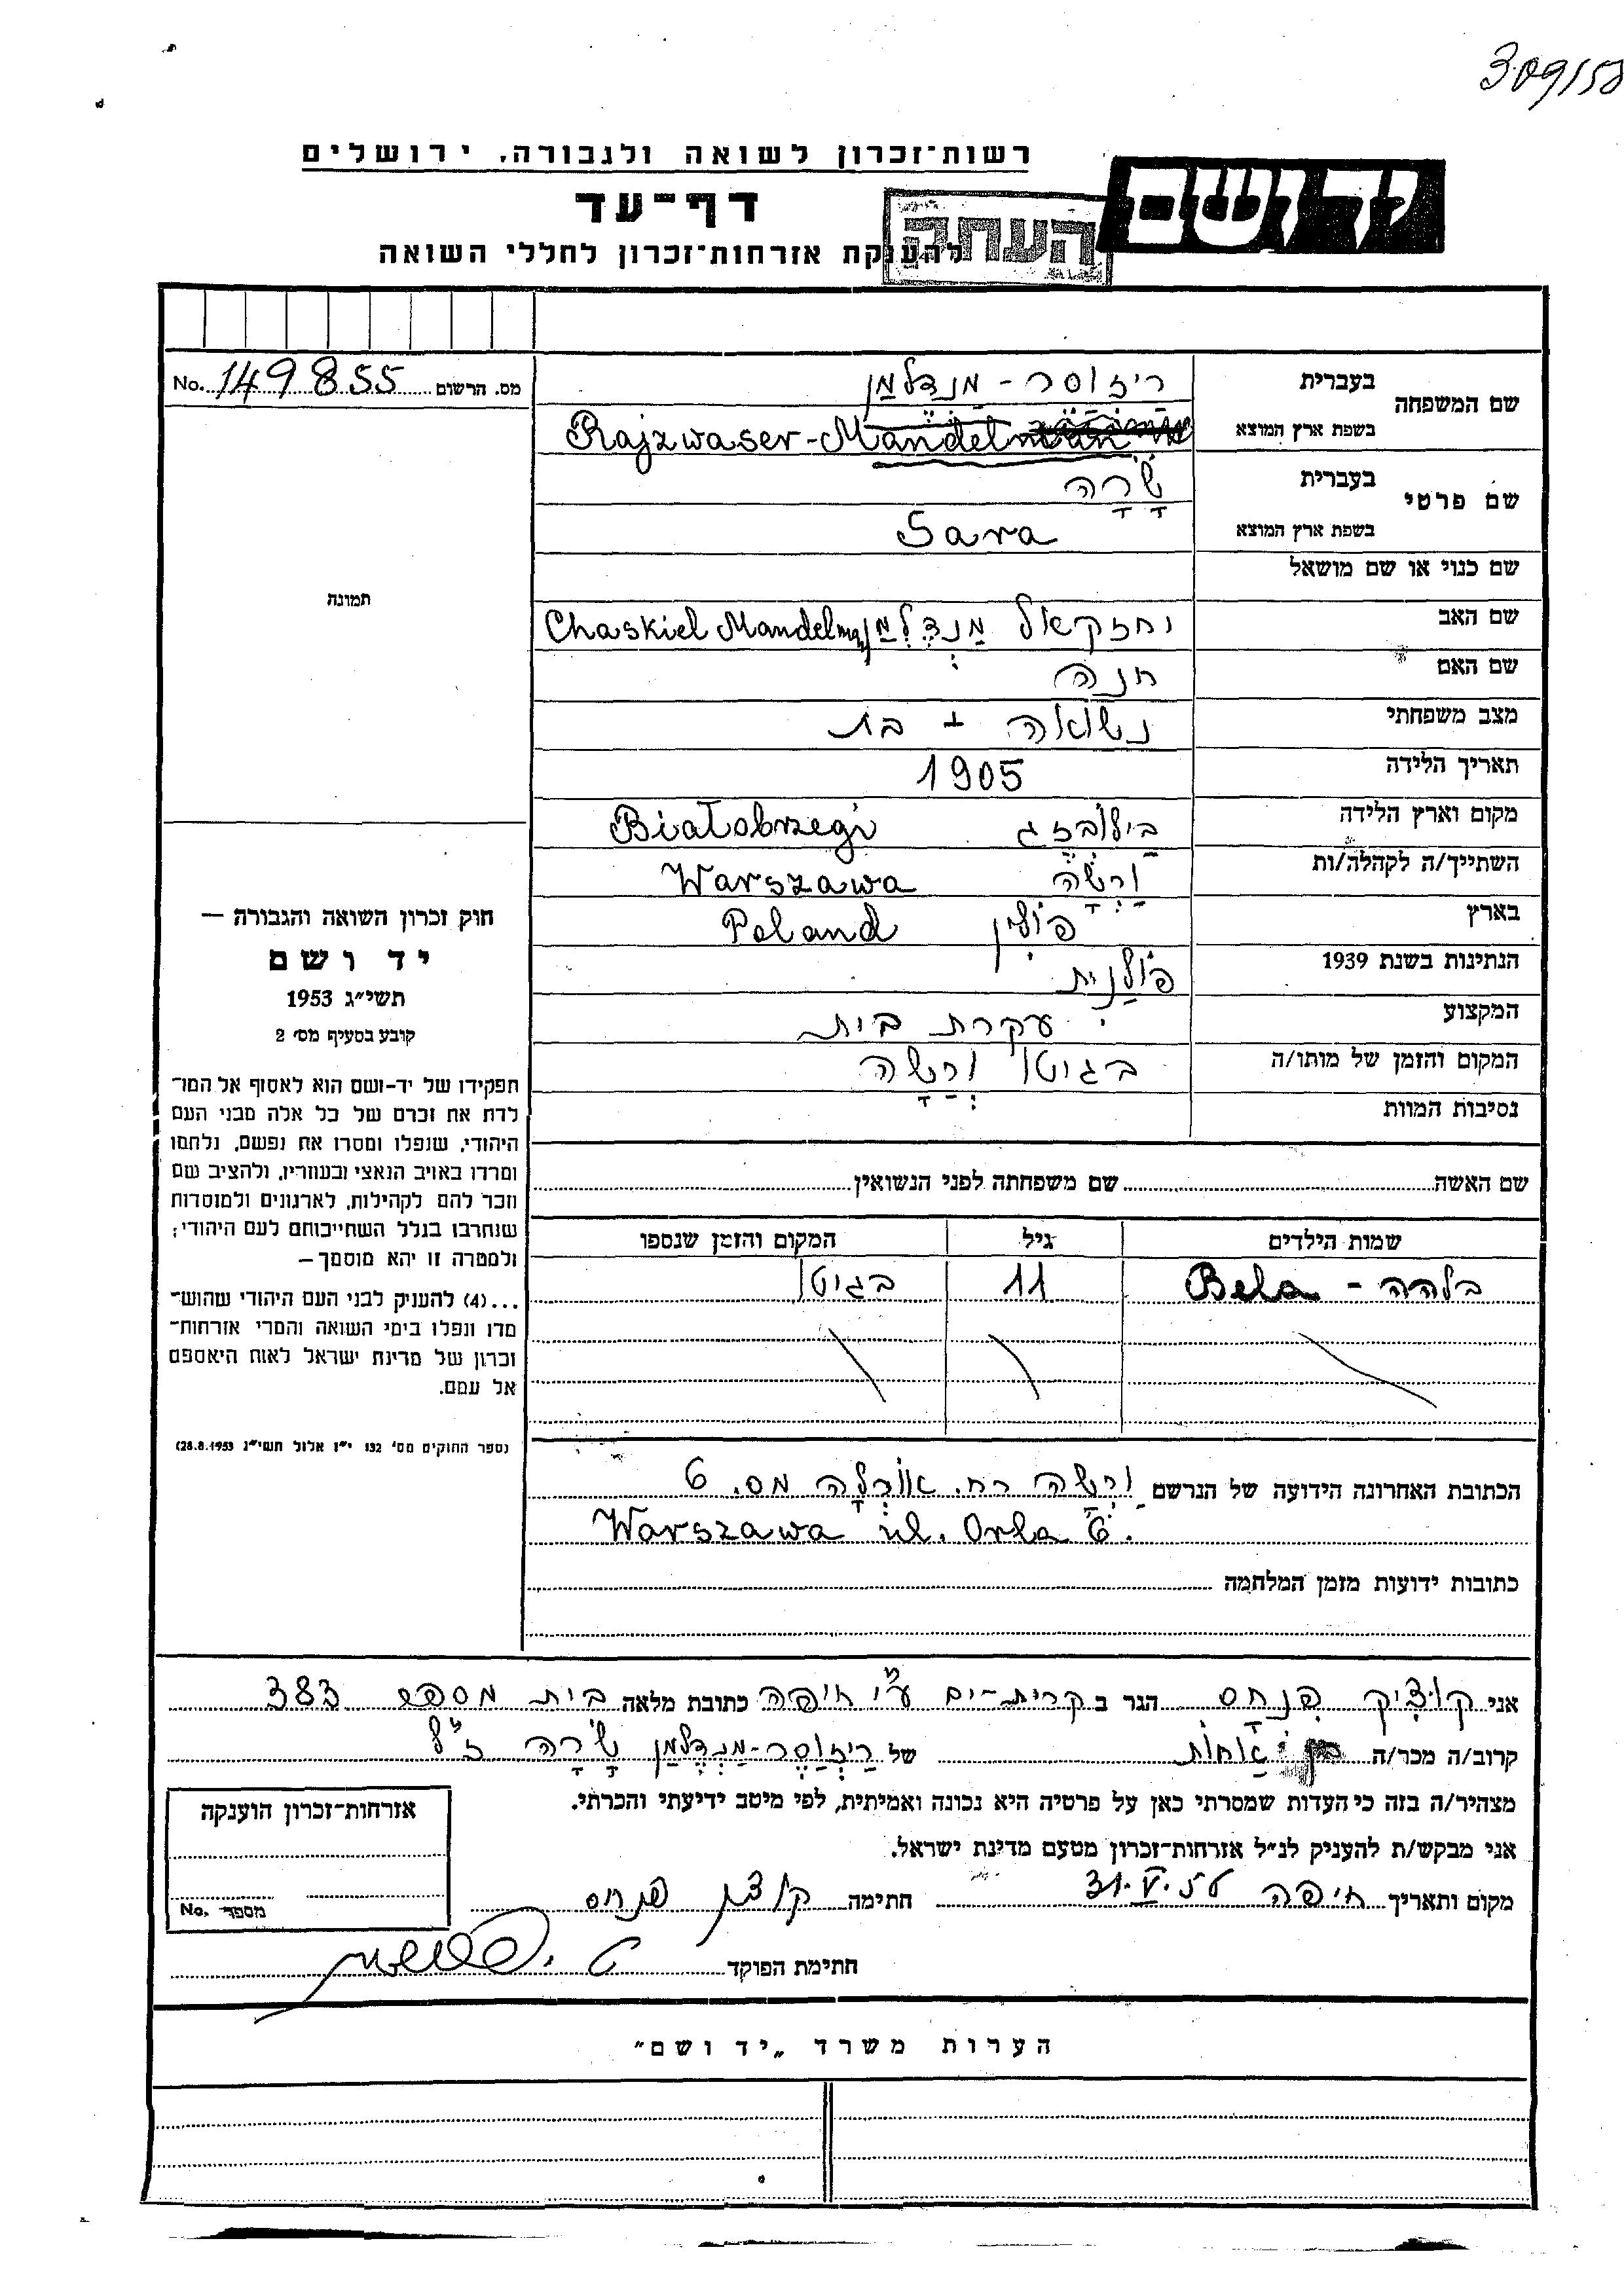 309/58
רשות־זכרון לשואה ולגבורה, ירושלים
יד ושם
דף־עד
העתק
להענקת אזרחות־זכרון לחללי השואה
מס. הרשום 149855 No.
שם המשפחה
בעברית ריזוסר - מַנְדֶלְמַן
בשפת ארץ המוצא Rajzwaser-Mandelman
שם פרטי
בעברית שָׂרָה
בשפת ארץ המוצא Sara
שם כנוי או שם מושאל
שם האב יחזקאל מַנְדֶלְמַן Chaskiel Mandelman
שם האם חנה
מצב משפחתי נשואה + בת
תאריך הלידה 1905
מקום וארץ הלידה Białobrzegi
השתייך/ה לקהלה/ות וַרְשָׁה Warszawa
בארץ פולין Poland
הנתינות בשנת 1939 פולַנית
המקצוע עקרת בית
המקום והזמן של מותו/ה בגיטו וַרְשָׁה
נסיבות המוות
תמונה
חוק זכרון השואה והגבורה —
יד ושם
תשי״ג 1953
קובע בסעיף מס׳ 2
תפקידו של יד־ושם הוא לאסוף אל המו־
לדת את זכרם של כל אלה מבני העם
היהודי, שנפלו ומסרו את נפשם, נלחמו
ומרדו באויב הנאצי ובעוזריו, ולהציב שם
וזכר להם לקהילות, לארגונים ולמוסדות
שנחרבו בגלל השתייכותם לעם היהודי;
ולמטרה זו יהא מוסמך—
...(4) להעניק לבני העם היהודי שהוש־
מדו ונפלו בימי השואה והמרי אזרחות־
זכרון של מדינת ישראל לאות היאספם
אל עמם.
(ספר החוקים מס׳ 132 י״ז אלול תשי״ג 28.8.1953)
שם האשה שם משפחתה לפני הנשואין
שמות הילדים גיל המקום והזמן שנספו
בלהה - Bela 11 בגיטו
הכתובת האחרונה הידועה של הנרשם וַרְשָׁה רח. אוֹרְלָה מס. 6
Warszawa ul. Orla 6.
כתובות ידועות מזמן המלחמה
אני קוצ׳יק פנחס הגר ב קרית-ים ע״י חיפה כתובת מלאה בית מספר 383
קרוב/ה מכר/ה בן אָחוֹת של רַיְזְוַסֶר-מַנְדֶלְמַן שָׂרָה ז״ל
מצהיר/ה בזה כי העדות שמסרתי כאן על פרטיה היא נכונה ואמיתית, לפי מיטב ידיעתי והכרתי.
אני מבקש/ת להעניק לנ״ל אזרחות־זכרון מטעם מדינת ישראל.
מקום ותאריך חיפה 31.V.56 חתימה פנחס
חתימת הפוקד
אזרחות־זכרון הוענקה
מספר No.
הערות משרד „יד ושם״